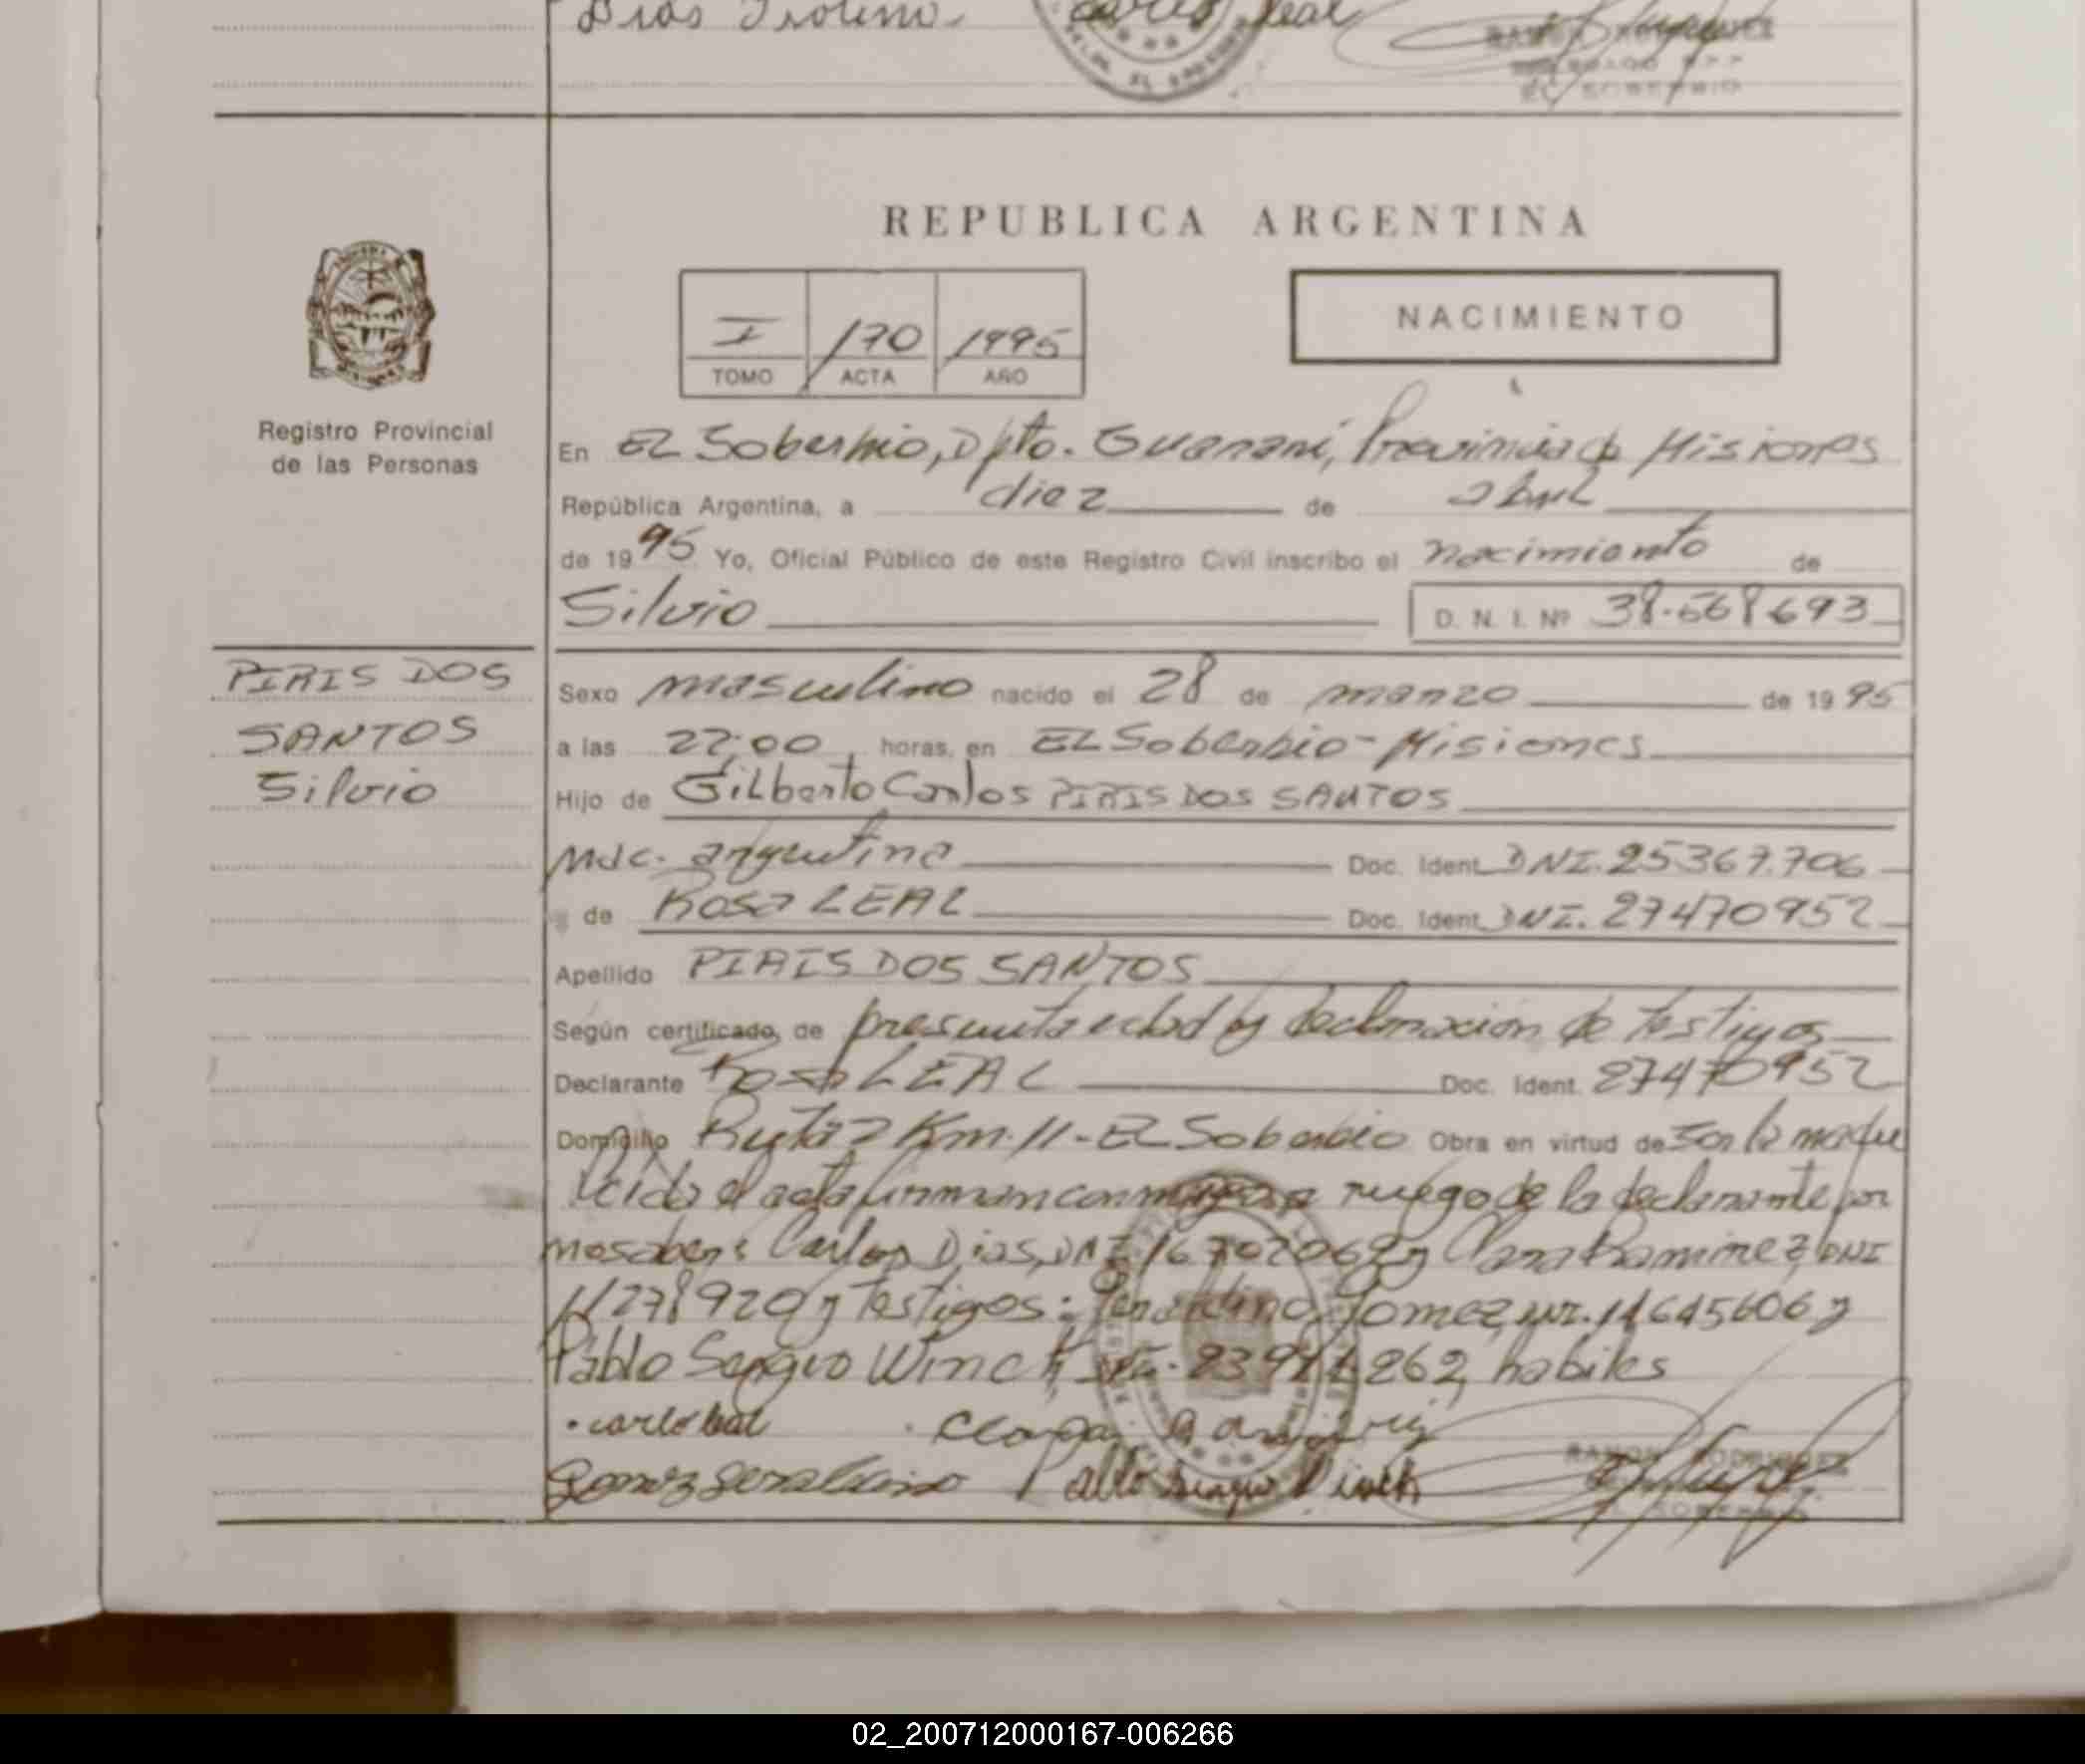 Dias
Leal
EL SOBERBIO
REPUBLICA ARGENTINA
I 170 1995
TOMO ACTA AÑO
NACIMIENTO
Registro Provincial
de las Personas
En EL Soberbio, Dpto. Guaraní, Provincia de Misiones
República Argentina, a diez de abril
de 1995 Yo, Oficial Público de este Registro Civil inscribo el nacimiento de
Silvio D. N. I. Nº 38.568693
PIRIS DOS
SANTOS
Silvio
Sexo masculino nacido el 28 de marzo de 1995
a las 22:00 horas, en EL Soberbio - Misiones
Hijo de Gilberto Carlos PIRIS DOS SANTOS
Nac. argentina Doc. Ident. DNI. 25367.706
de Rosa LEAL Doc. Ident. DNI. 27470952
Apellido PIRIS DOS SANTOS
Según certificado de presunta edad y declaración de testigos
Declarante Rosa LEAL Doc. Ident. 27470952
Domicilio Ruta 2 Km. 11 - EL Soberbio Obra en virtud de ser la madre
Leida el acta firman conmigo a ruego de la declarante por
no saber: Carlos Dias, DNI 16702069 y Clara Ramirez, DNI
11278920 y testigos: Gomez, y
Pablo Sergio Winck habiles
Gomez
Pablo Sergio Winck
RAMON RODRIGUEZ
02_200712000167-006266